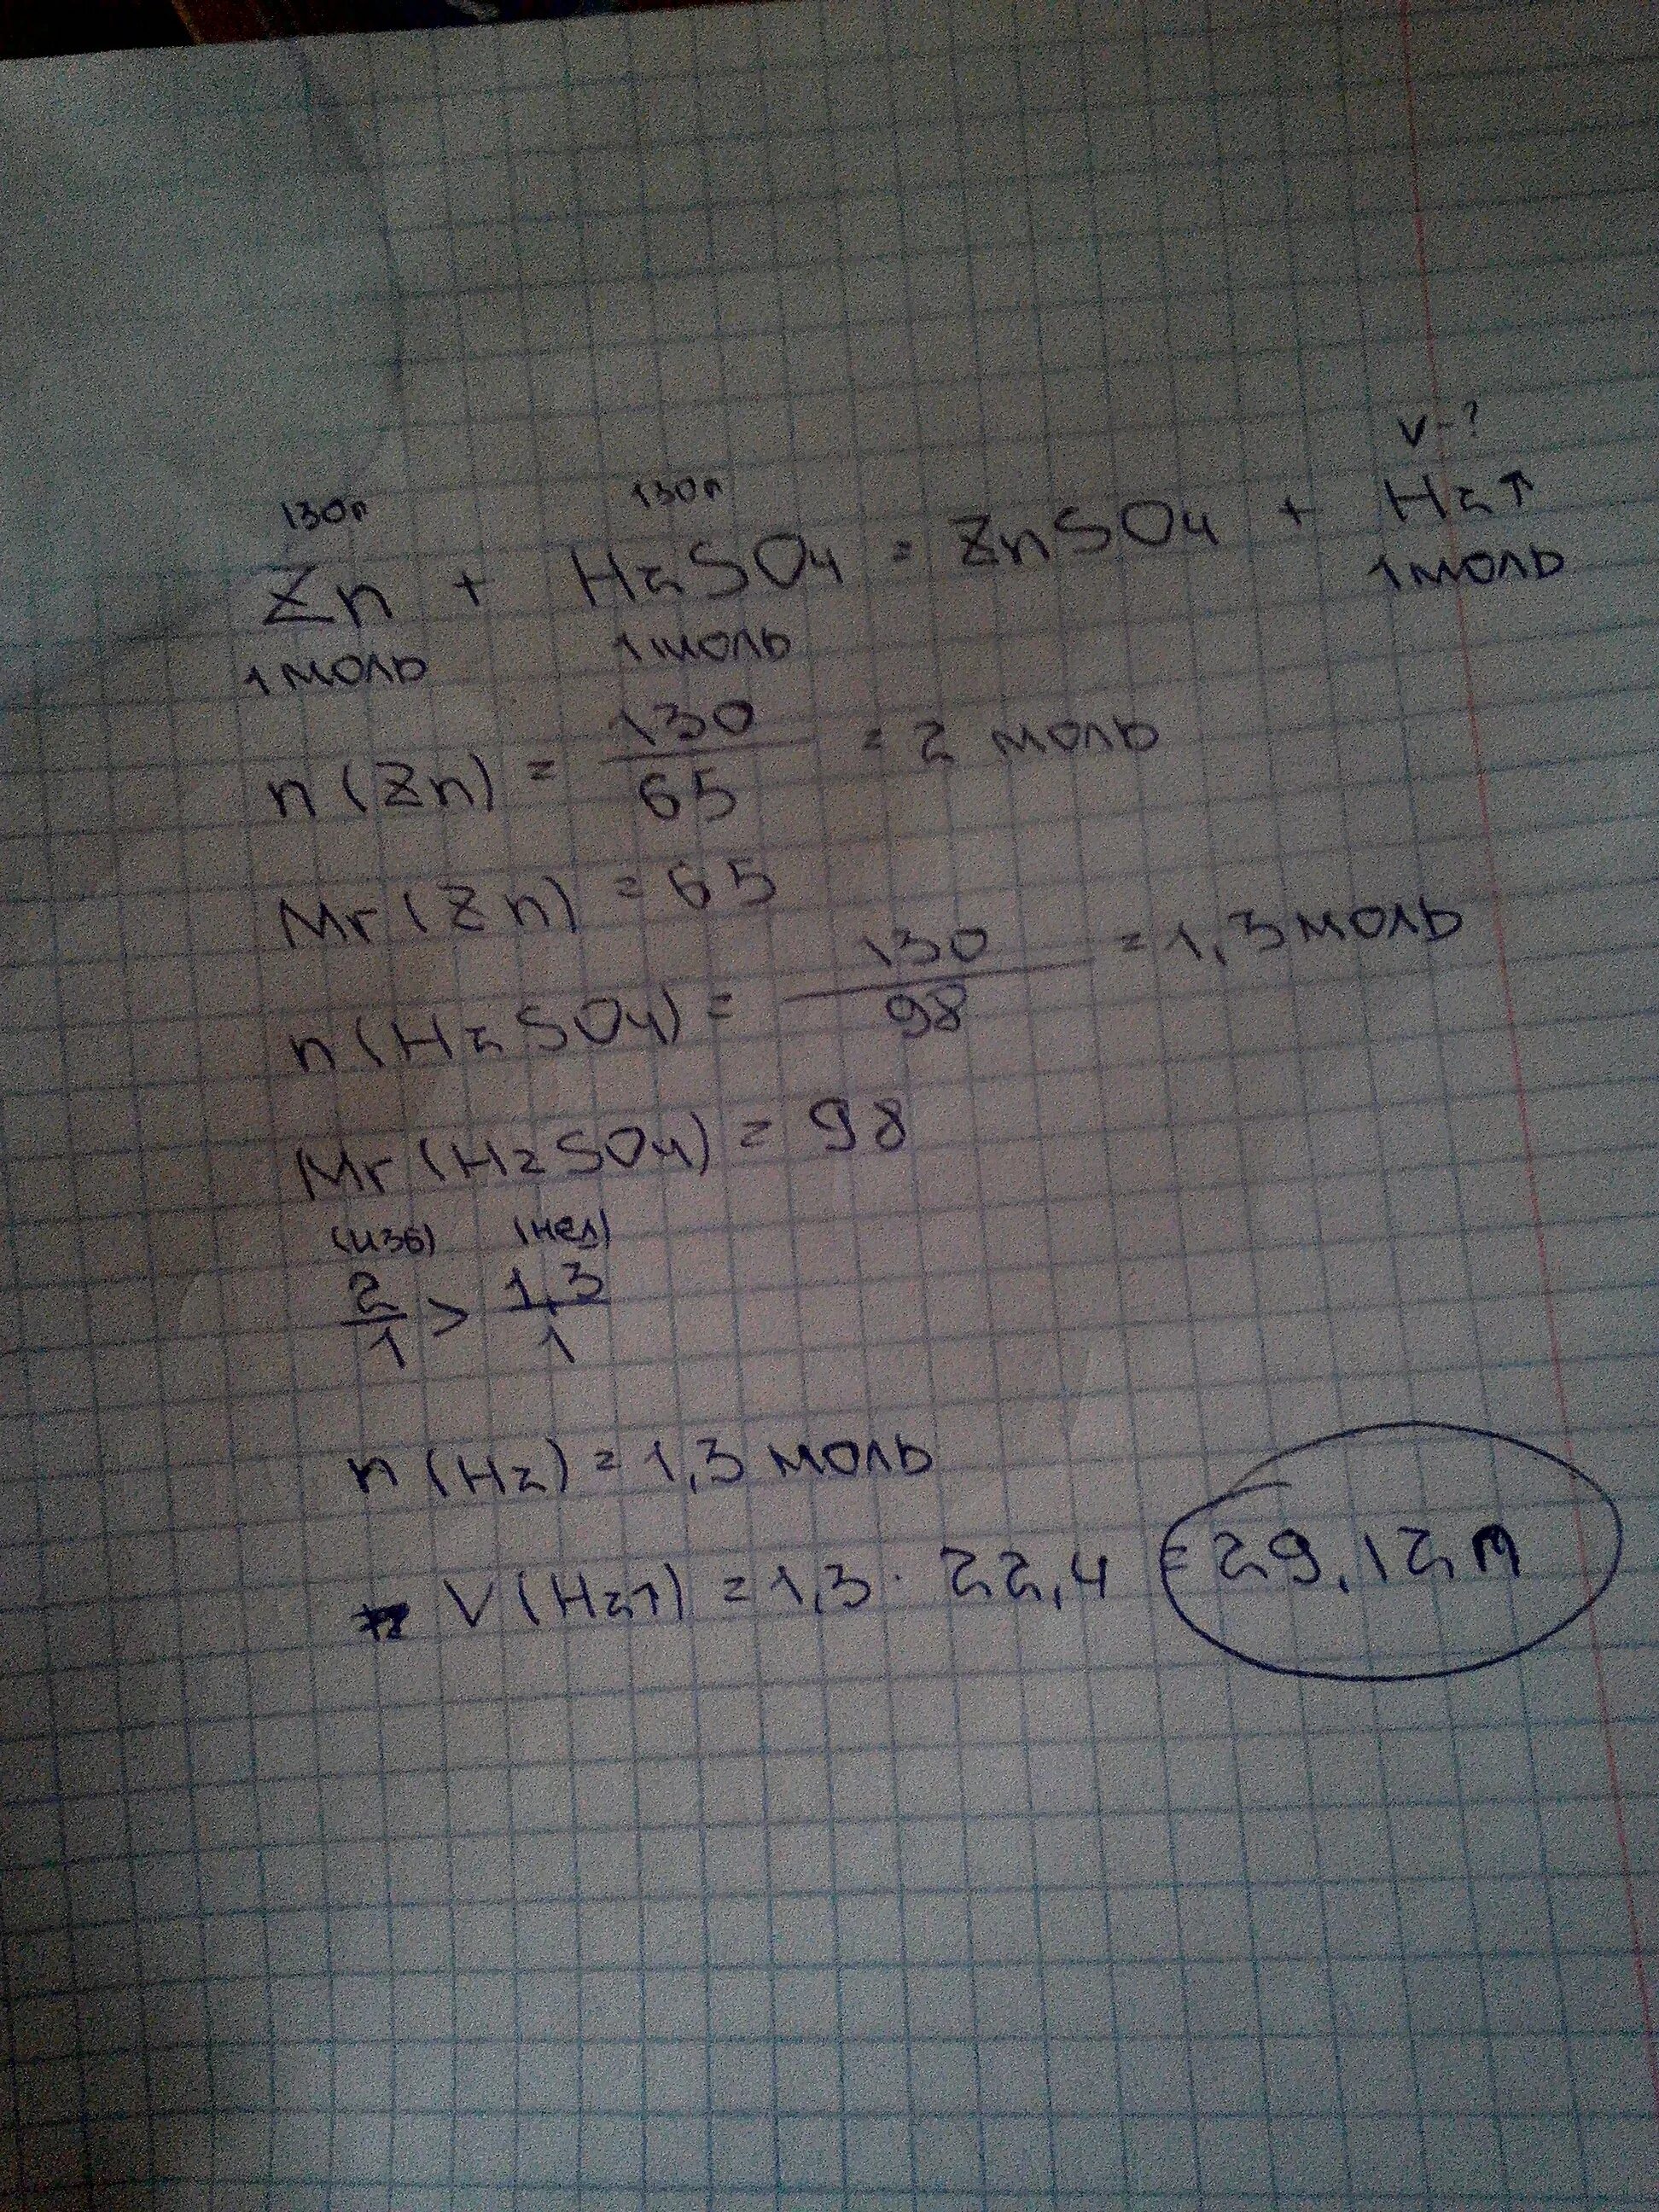 V-?
130г 130г
Zn + H2SO4 = ZnSO4 + H2↑
1моль 1моль 1моль
n(Zn) = 130/65 = 2 моль
Mr(Zn) = 65
n(H2SO4) = 130/98 = 1,3моль
Mr(H2SO4) = 98
(изб) (нед)
2/1 > 1,3/1
n(H2) = 1,3 моль
V(H2↑) = 1,3 · 22,4 = 29,12л